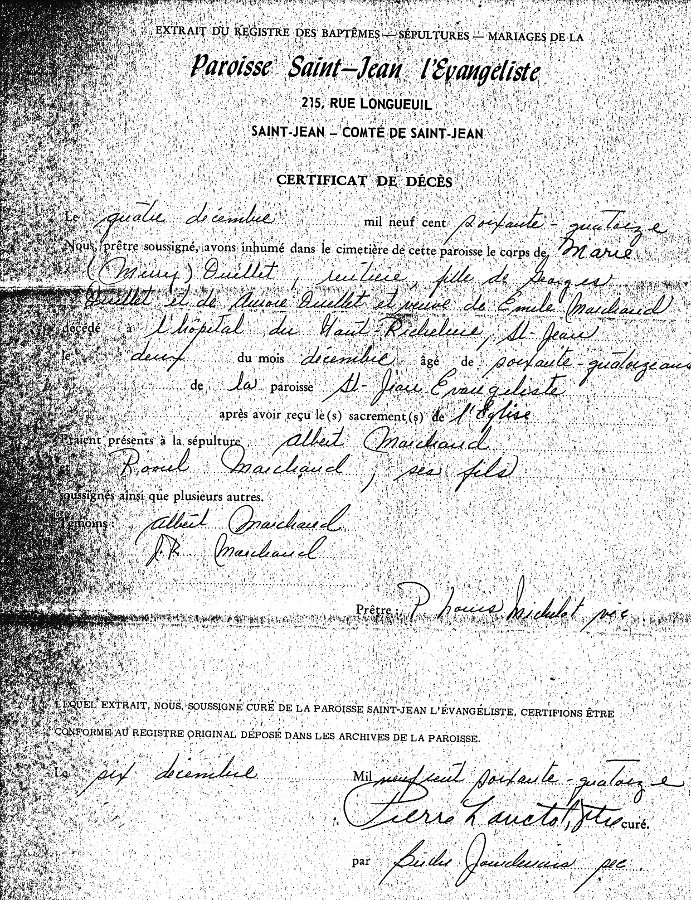 EXTRAIT DU REGISTRE DES BAPTÊMES — SÉPULTURES — MARIAGES DE LA
Paroisse Saint-Jean l'Évangéliste
215, RUE LONGUEUIL
SAINT-JEAN – COMTÉ DE SAINT-JEAN
CERTIFICAT DE DÉCÈS
Le quatre décembre mil neuf cent soixante-quatorze
Nous, prêtre soussigné, avons inhumé dans le cimetière de cette paroisse le corps de Marie
Ouellet, rentière, fille de Georges
Ouellet et de Aurore Ouellet et veuve de Émile Marchand
décédé à l'hôpital du Haut-Richelieu, St-Jean
le deux du mois décembre âgé de soixante-quatorze ans
de la paroisse St-Jean Évangéliste
après avoir reçu le(s) sacrement(s) de l'Église
Étaient présents à la sépulture Albert Marchand
Raoul Marchand, ses fils
soussignés ainsi que plusieurs autres.
Témoins : Albert Marchand
J.R. Marchand
Prêtre :
LEQUEL EXTRAIT, NOUS, SOUSSIGNÉ CURÉ DE LA PAROISSE SAINT-JEAN L'ÉVANGÉLISTE, CERTIFIONS ÊTRE
CONFORME AU REGISTRE ORIGINAL DÉPOSÉ DANS LES ARCHIVES DE LA PAROISSE.
Le six décembre Mil neuf cent soixante-quatorze
Pierre Lanctot, ptre curé.
par